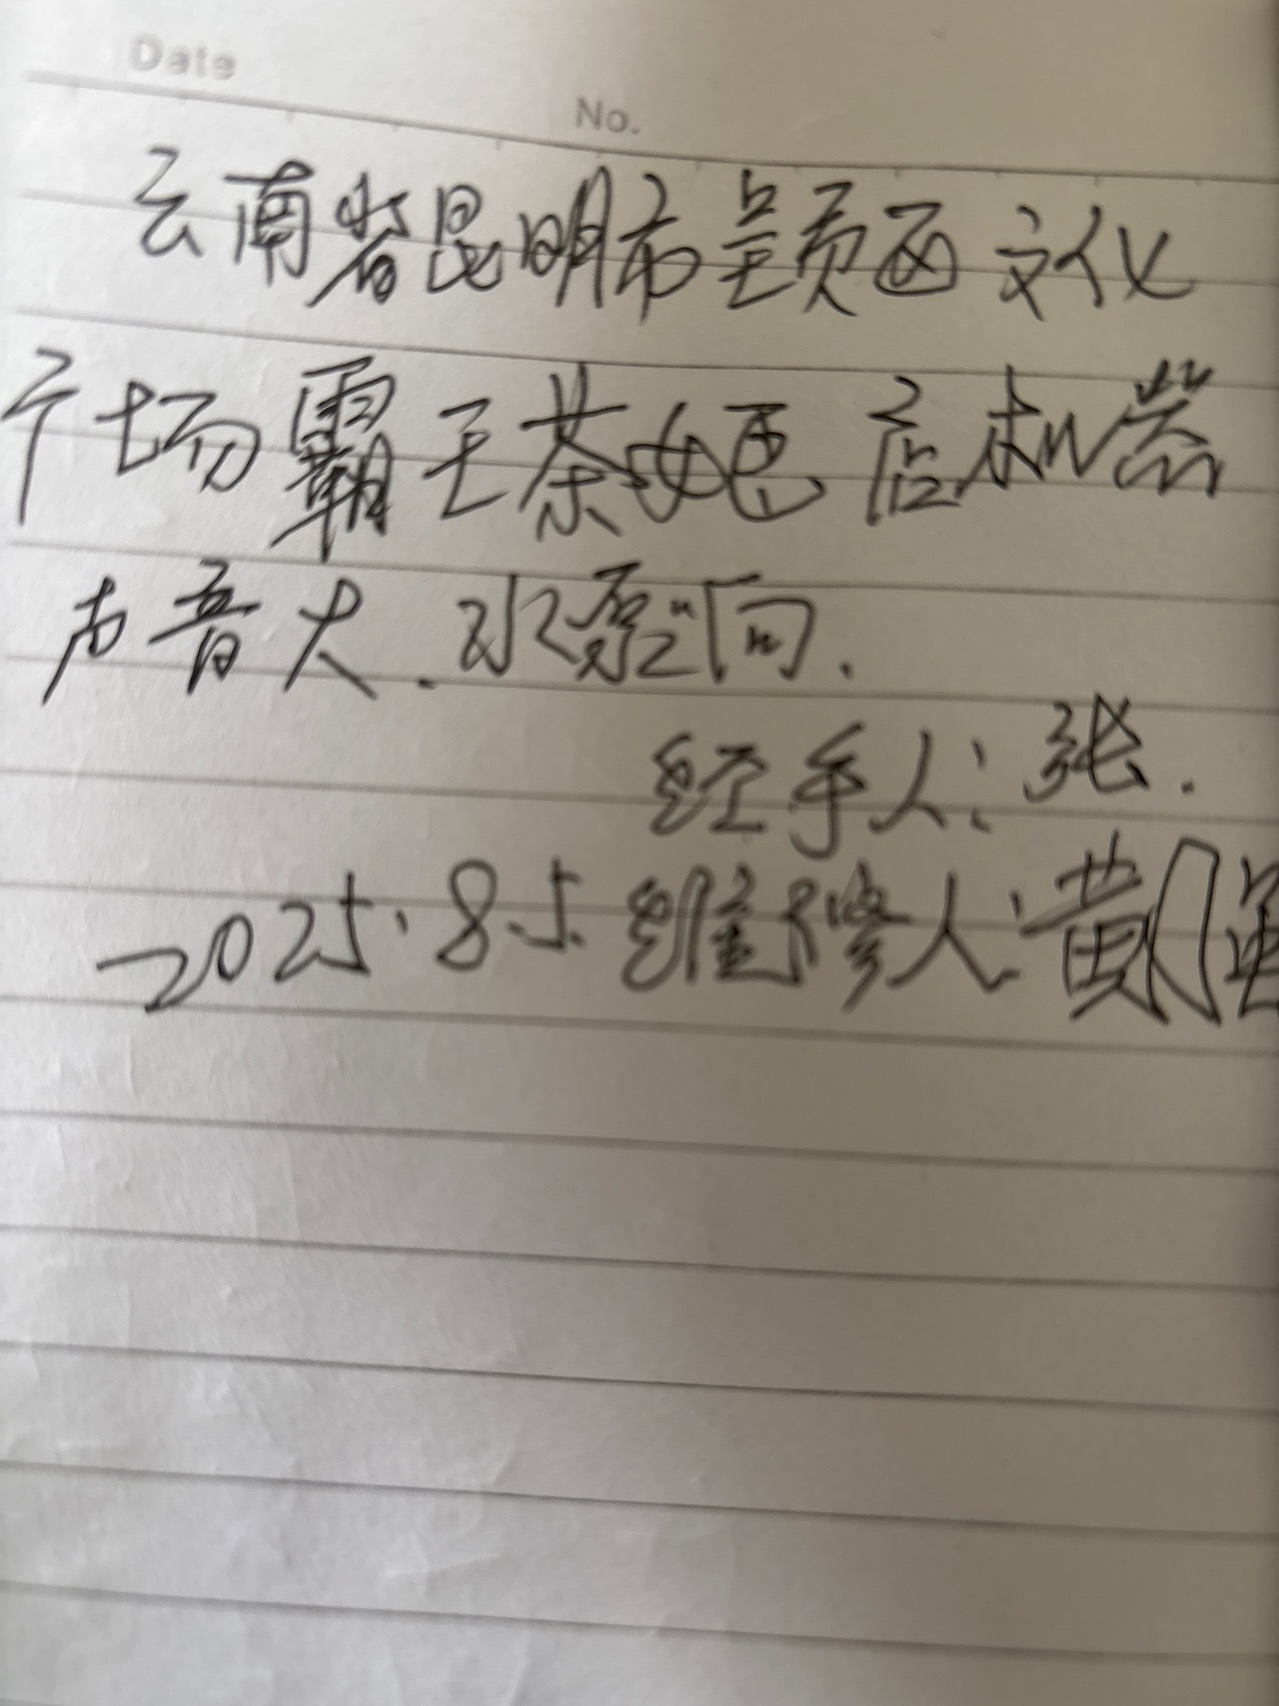 Date
No.
云南省昆明市呈贡区文化
广场霸王茶姬店机器
声音大.水泵响.
经手人:张.
2025.8.5.维修人:黄